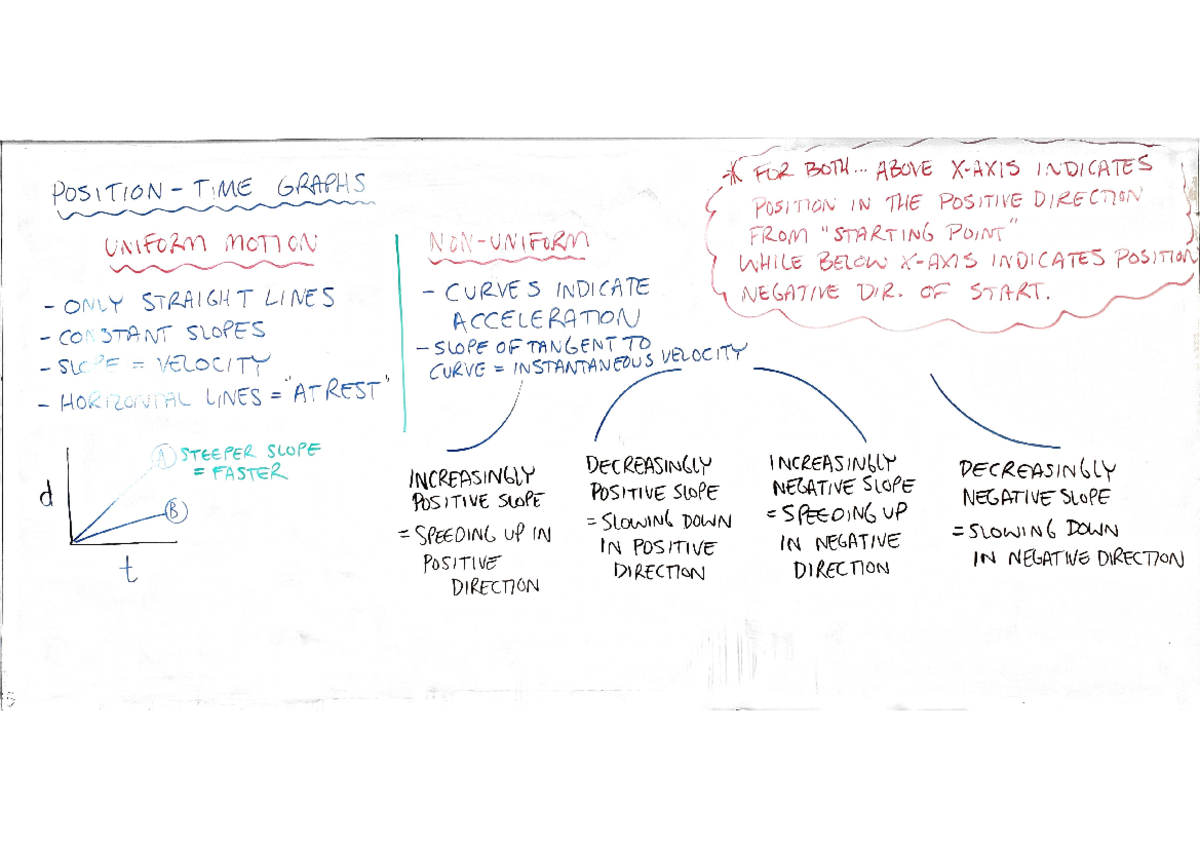 POSITION-TIME GRAPHS
UNIFORM MOTION
- ONLY STRAIGHT LINES
- CONSTANT SLOPES
- SLOPE = VELOCITY
- HORIZONTAL LINES = "AT REST"
A STEEPER SLOPE
= FASTER
d
B
t
NON-UNIFORM
- CURVES INDICATE
ACCELERATION
- SLOPE OF TANGENT TO
CURVE = INSTANTANEOUS VELOCITY
* FOR BOTH... ABOVE X-AXIS INDICATES
POSITION IN THE POSITIVE DIRECTION
FROM "STARTING POINT"
WHILE BELOW X-AXIS INDICATES POSITION
NEGATIVE DIR. OF START.
INCREASINGLY
POSITIVE SLOPE
= SPEEDING UP IN
POSITIVE
DIRECTION
DECREASINGLY
POSITIVE SLOPE
= SLOWING DOWN
IN POSITIVE
DIRECTION
INCREASINGLY
NEGATIVE SLOPE
= SPEEDING UP
IN NEGATIVE
DIRECTION
DECREASINGLY
NEGATIVE SLOPE
= SLOWING DOWN
IN NEGATIVE DIRECTION